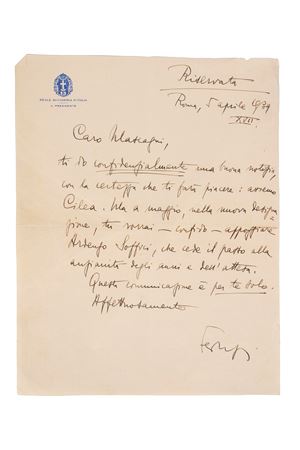 REALE ACCADEMIA D'ITALIA
IL PRESIDENTE
Riservata
Roma, 5 aprile 1939
XVII
Caro Mascagni,
ti do confidenzialmente una buona notizia,
con la certezza che ti farà piacere: avremo
Cilea. Ma a maggio, nella nuova designa
zione, tu vorrai – confido – appoggiare
Ardengo Soffici, che cede il passo alla
anzianità degli anni e dell'attesa.
Questa comunicazione è per te solo.
Affettuosamente